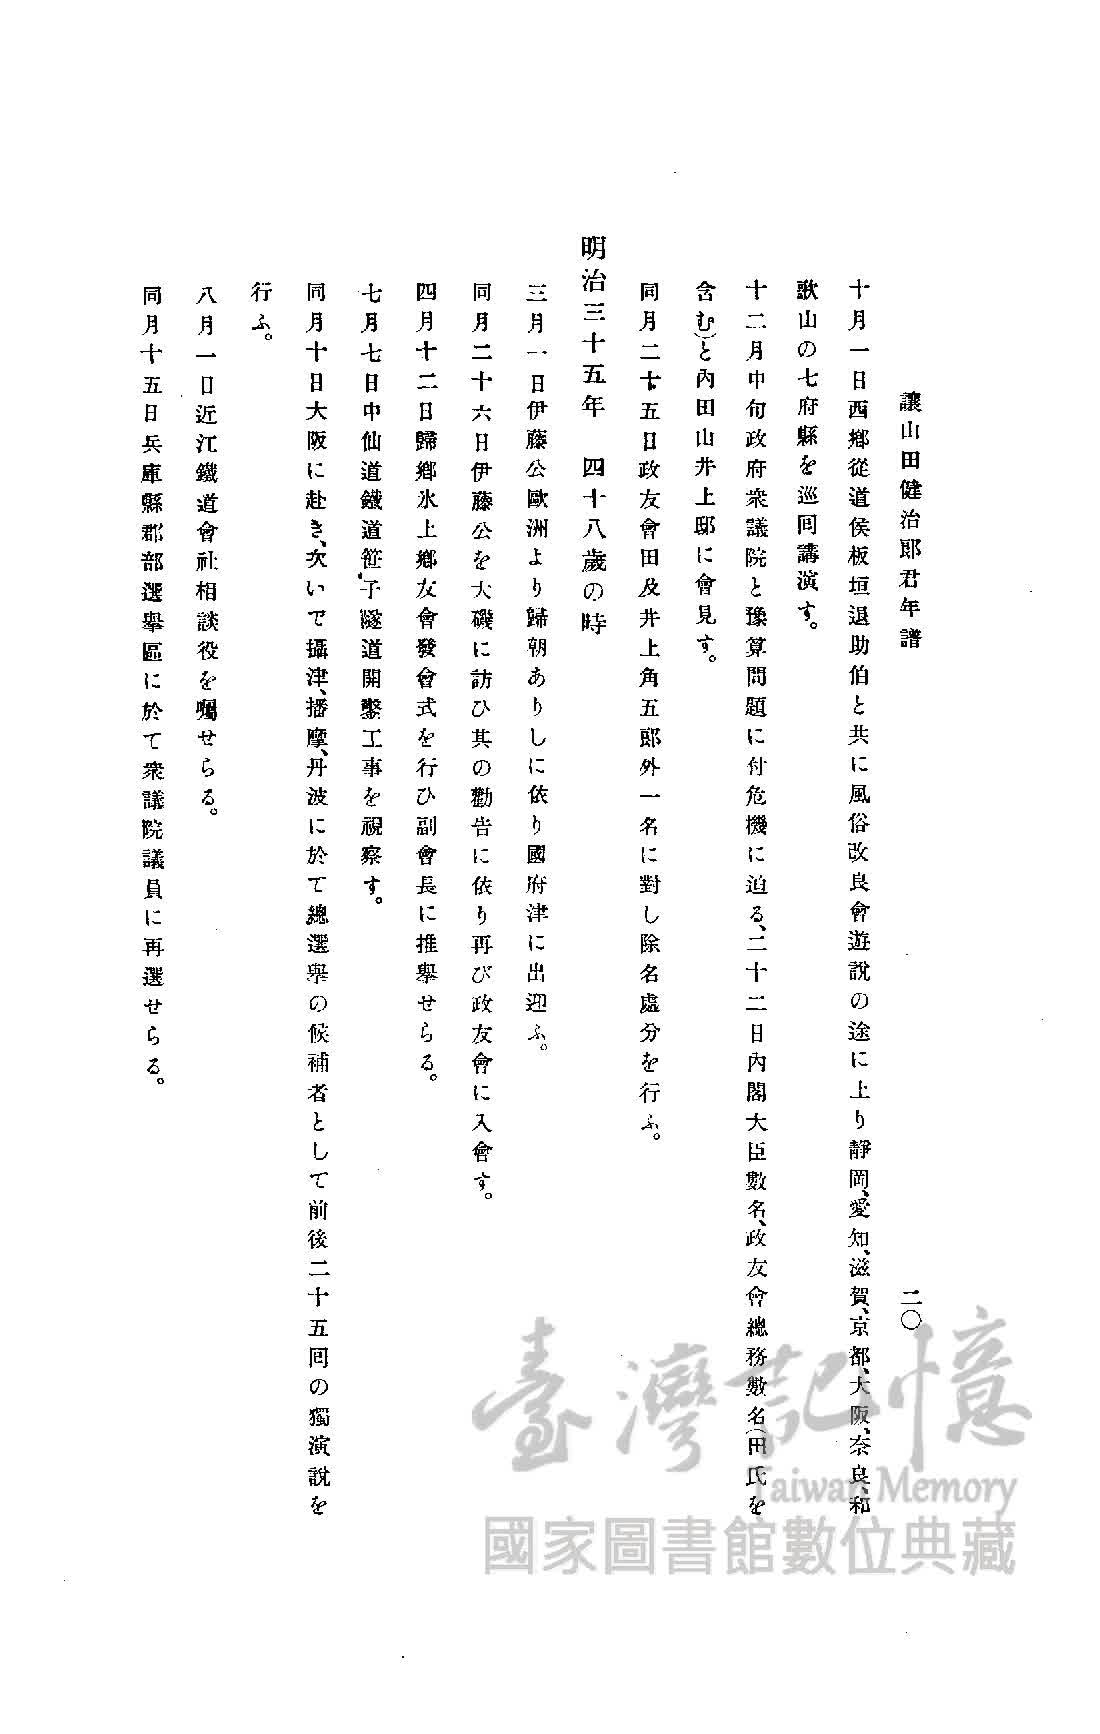 讓山田健治郎君年譜
二〇
十月一日西鄉從道侯板垣退助伯と共に風俗改良會遊說の途に上り靜岡、愛知、滋賀、京都、大阪、奈良、和
歌山の七府縣を巡囘講演す。
十二月中旬政府衆議院と豫算問題に付危機に迫る、二十二日內閣大臣數名、政友會總務數名(田氏を
含む)と內田山井上邸に會見す。
同月二十五日政友會田及井上角五郎外一名に對し除名處分を行ふ。
明治三十五年 四十八歲の時
三月一日伊藤公歐洲より歸朝ありしに依り國府津に出迎ふ。
同月二十六日伊藤公を大磯に訪ひ其の勸告に依り再び政友會に入會す。
四月十二日歸鄉氷上鄉友會發會式を行ひ副會長に推擧せらる。
七月七日中仙道鐵道笹子隧道開鑿工事を視察す。
同月十日大阪に赴き、次いで攝津、播摩、丹波に於て總選擧の候補者として前後二十五囘の獨演說を
行ふ。
八月一日近江鐵道會社相談役を囑せらる。
同月十五日兵庫縣郡部選擧區に於て衆議院議員に再選せらる。
臺灣記憶
Taiwan Memory
國家圖書館數位典藏